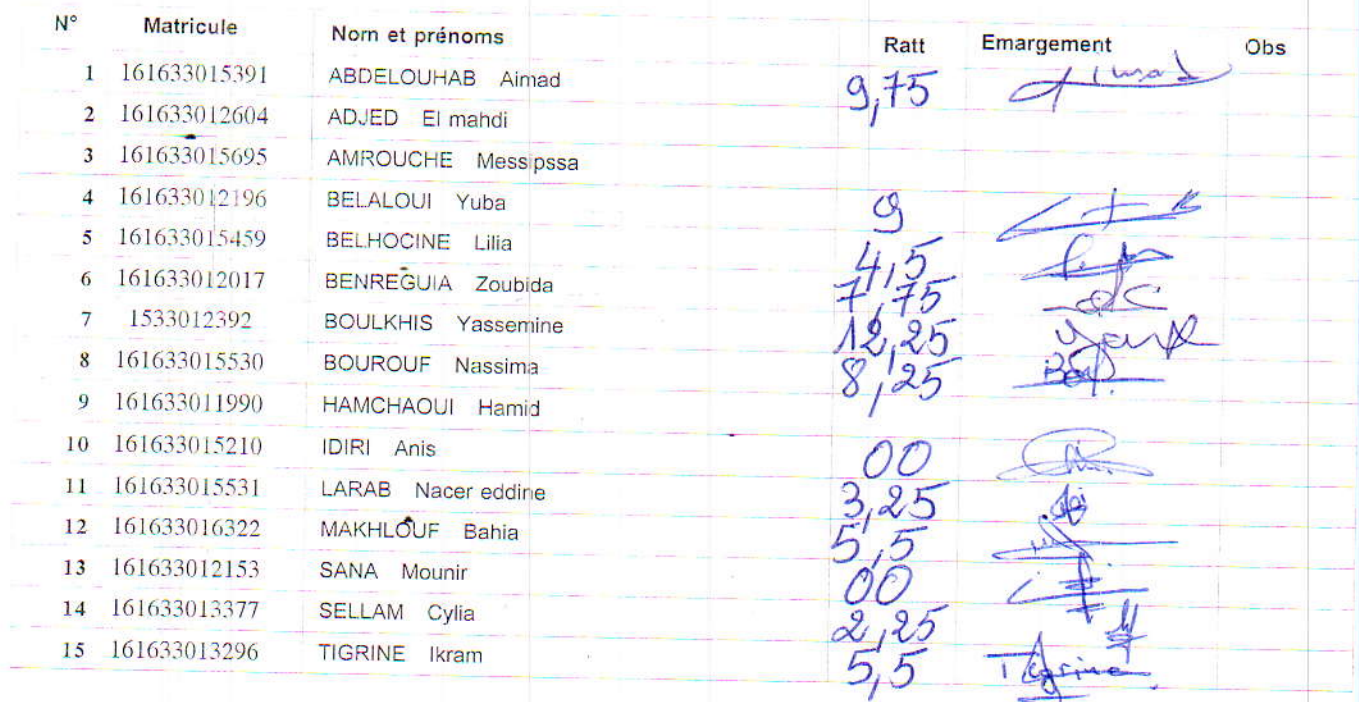 N° Matricule Nom et prénoms Ratt Emargement Obs
1 161633015391 ABDELOUHAB Aimad 9,75
2 161633012604 ADJED El mahdi
3 161633015695 AMROUCHE Messipssa
4 161633012196 BELALOUI Yuba 9
5 161633015459 BELHOCINE Lilia 4,5
6 161633012017 BENREGUIA Zoubida 7,75
7 1533012392 BOULKHIS Yassemine 12,25
8 161633015530 BOUROUF Nassima 8,25
9 161633011990 HAMCHAOUI Hamid
10 161633015210 IDIRI Anis 00
11 161633015531 LARAB Nacer eddine 3,25
12 161633016322 MAKHLOUF Bahia 5,5
13 161633012153 SANA Mounir 00
14 161633013377 SELLAM Cylia 2,25
15 161633013296 TIGRINE Ikram 5,5 Tigrine